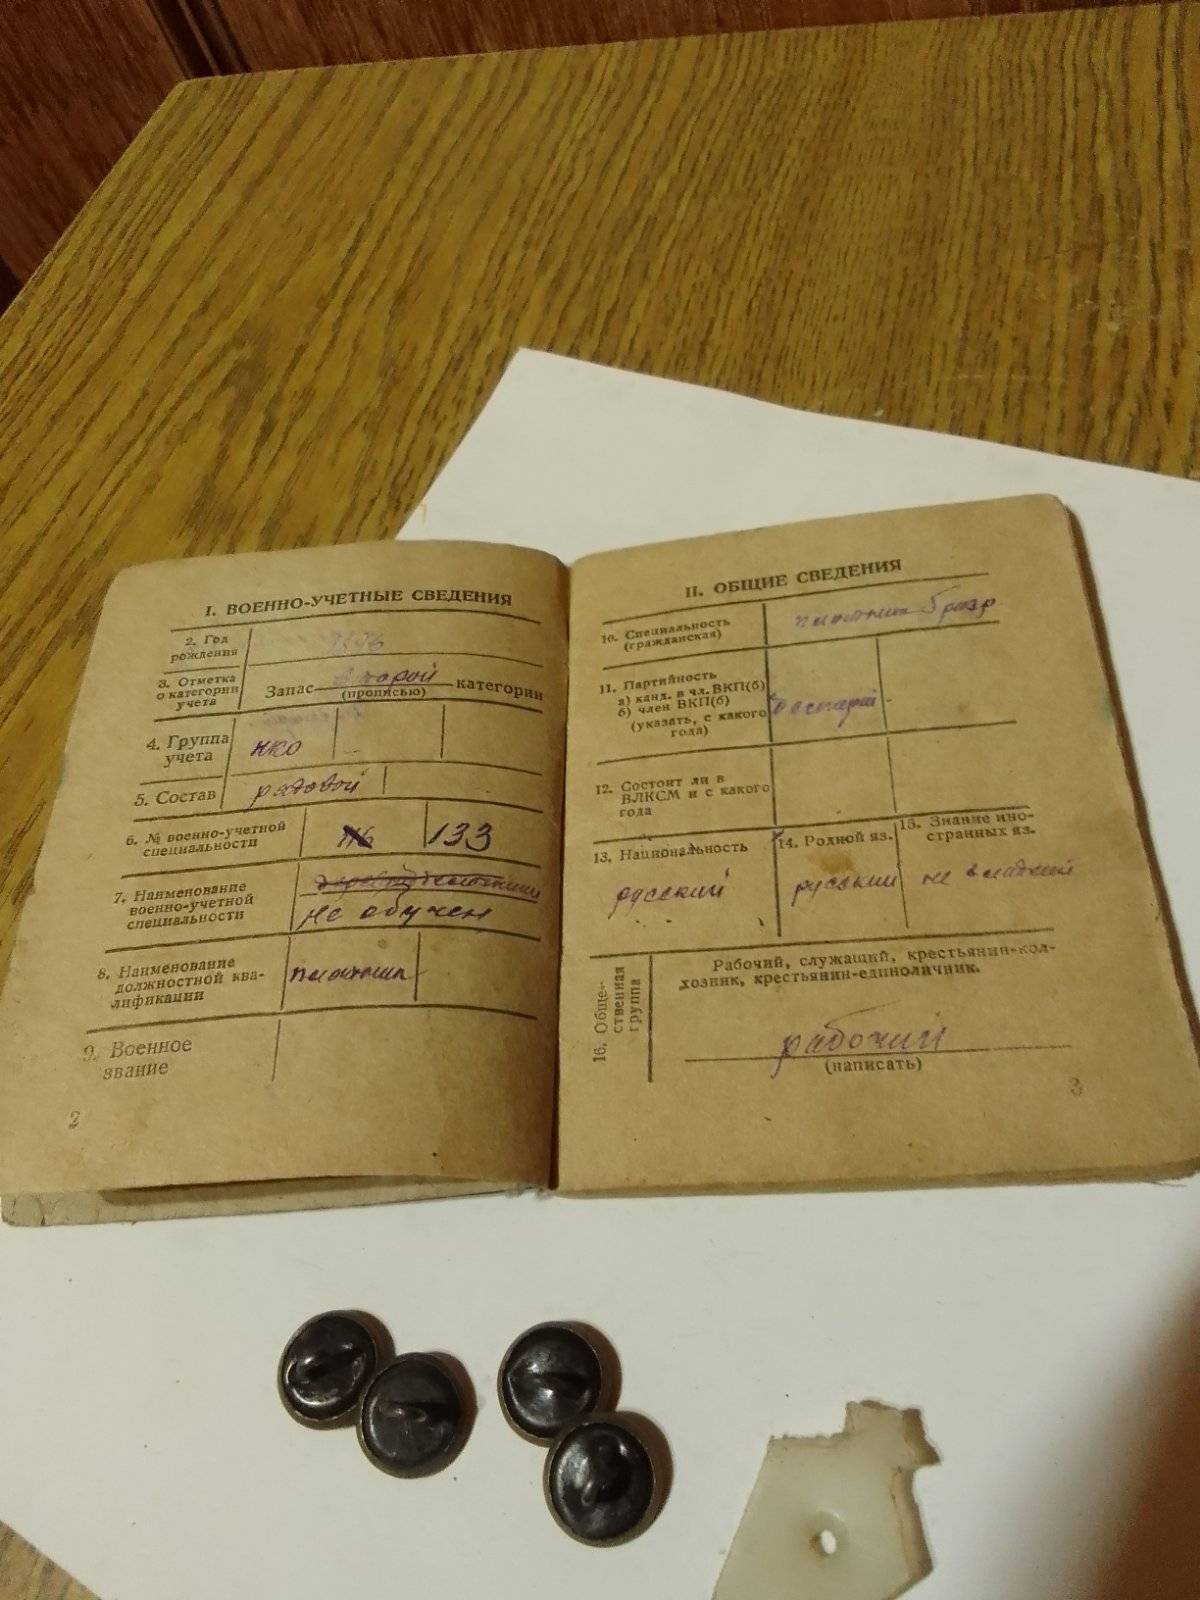 I. ВОЕННО-УЧЕТНЫЕ СВЕДЕНИЯ
2. Год
рождения
3. Отметка
о категории
учета
Запас второй категории
(прописью)
4. Группа
учета
НКО
5. Состав
рядовой
6. № военно-учетной
специальности
133
7. Наименование
военно-учетной
специальности
не обучен
8. Наименование
должностной ква-
лификации
плотник
9. Военное
звание
2
II. ОБЩИЕ СВЕДЕНИЯ
10. Специальность
(гражданская)
плотник 5 разр
11. Партийность
а) канд. в чл. ВКП(б)
б) член ВКП(б)
(указать, с какого
года)
беспартий
12. Состоит ли в
ВЛКСМ и с какого
года
13. Национальность
русский
14. Родной яз.
русский
15. Знание ино-
странных яз.
не владеет
16. Обще-
ственная
группа
Рабочий, служащий, крестьянин-кол-
хозник, крестьянин-единоличник.
рабочий
(написать)
3